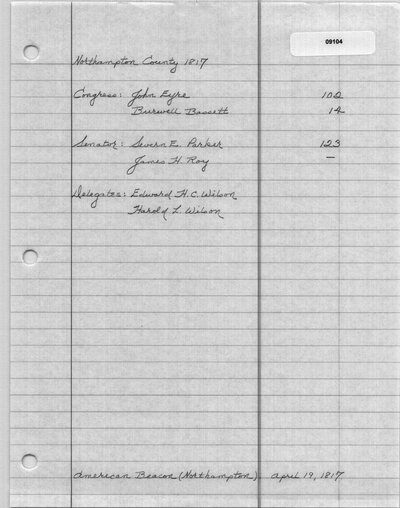 09104
Northampton County 1817
Congress: John Eyre 102
Burwell Bassett 14
Senator: Severn E. Parker 123
James H. Roy —
Delegates: Edward H. C. Wilson
Harold L. Wilson
American Beacon (Northampton) April 19, 1817